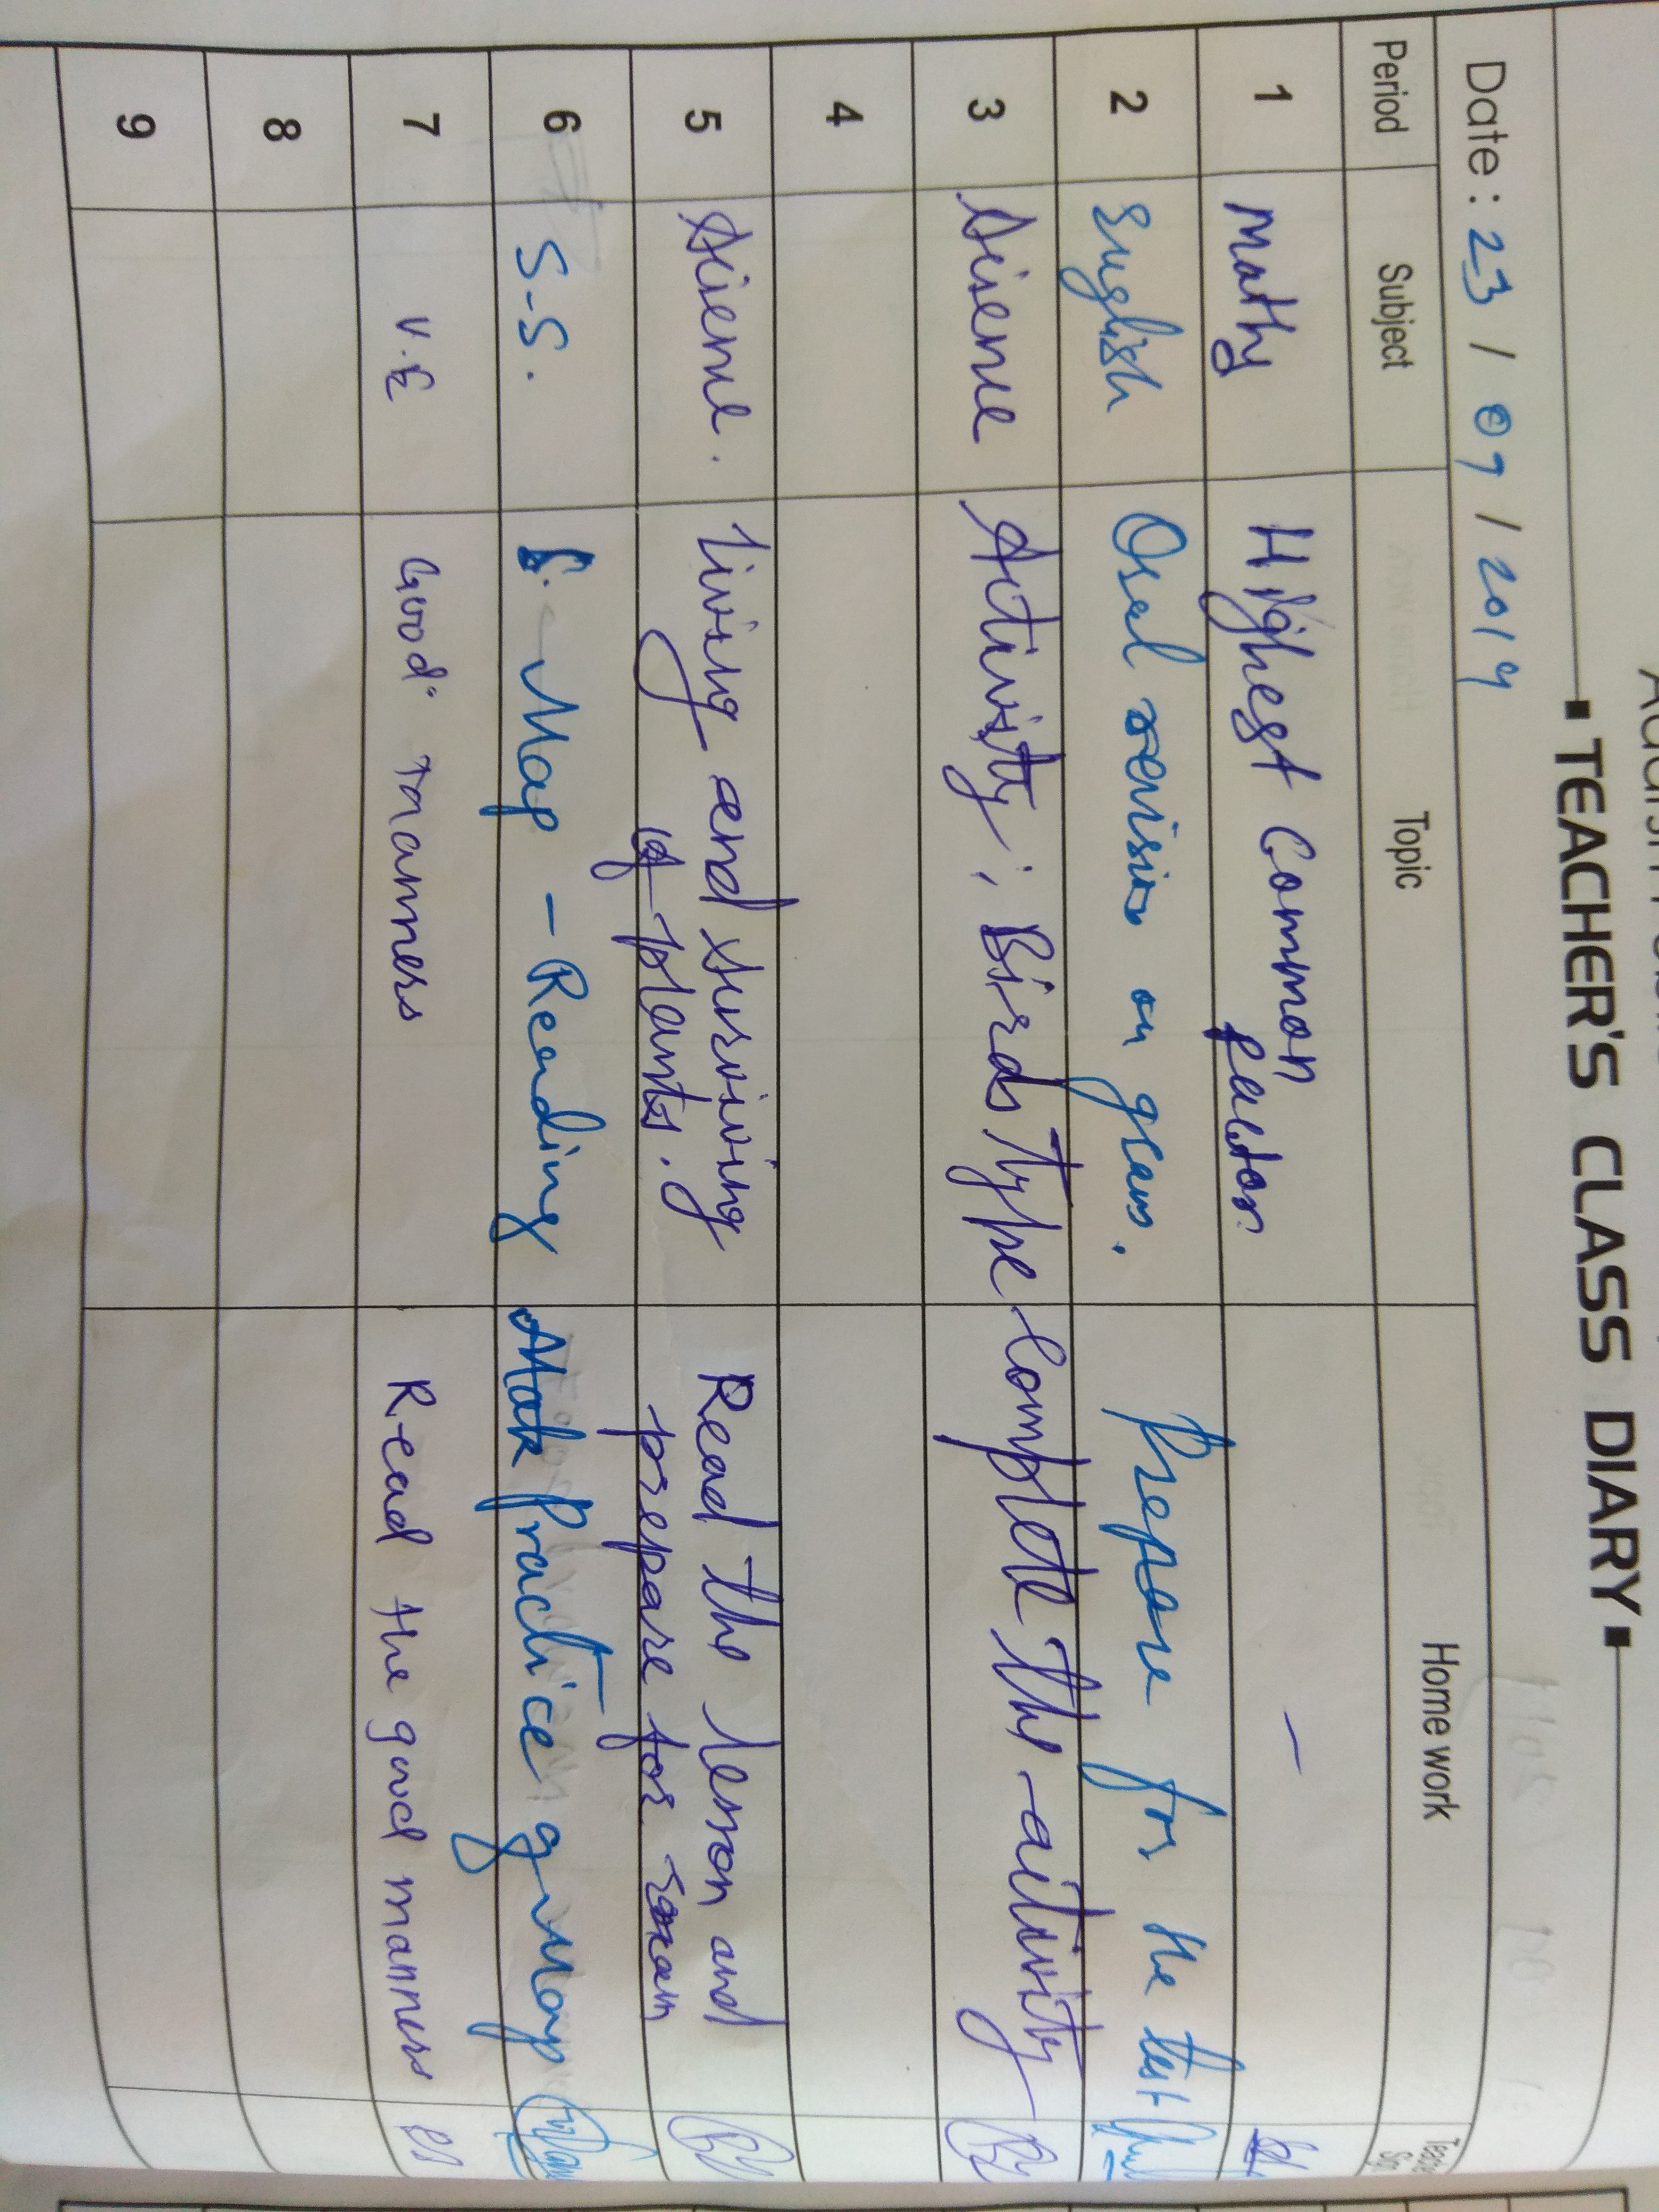 TEACHER'S CLASS DIARY
Date : 23 / 07 / 2019
Period Subject Topic Home work Teacher Sign
1 Maths Highest Common Factor. —
2 English Oral revision on gram. Prepare for the test
3 Science Activity : Birds Type Complete the activity
4
5 Science. Living and surviving Read the lesson and
of plants. prepare for exam
6 S-S. Map - Reading Practice g map
7 V.E Good manners Read the good manners
8
9